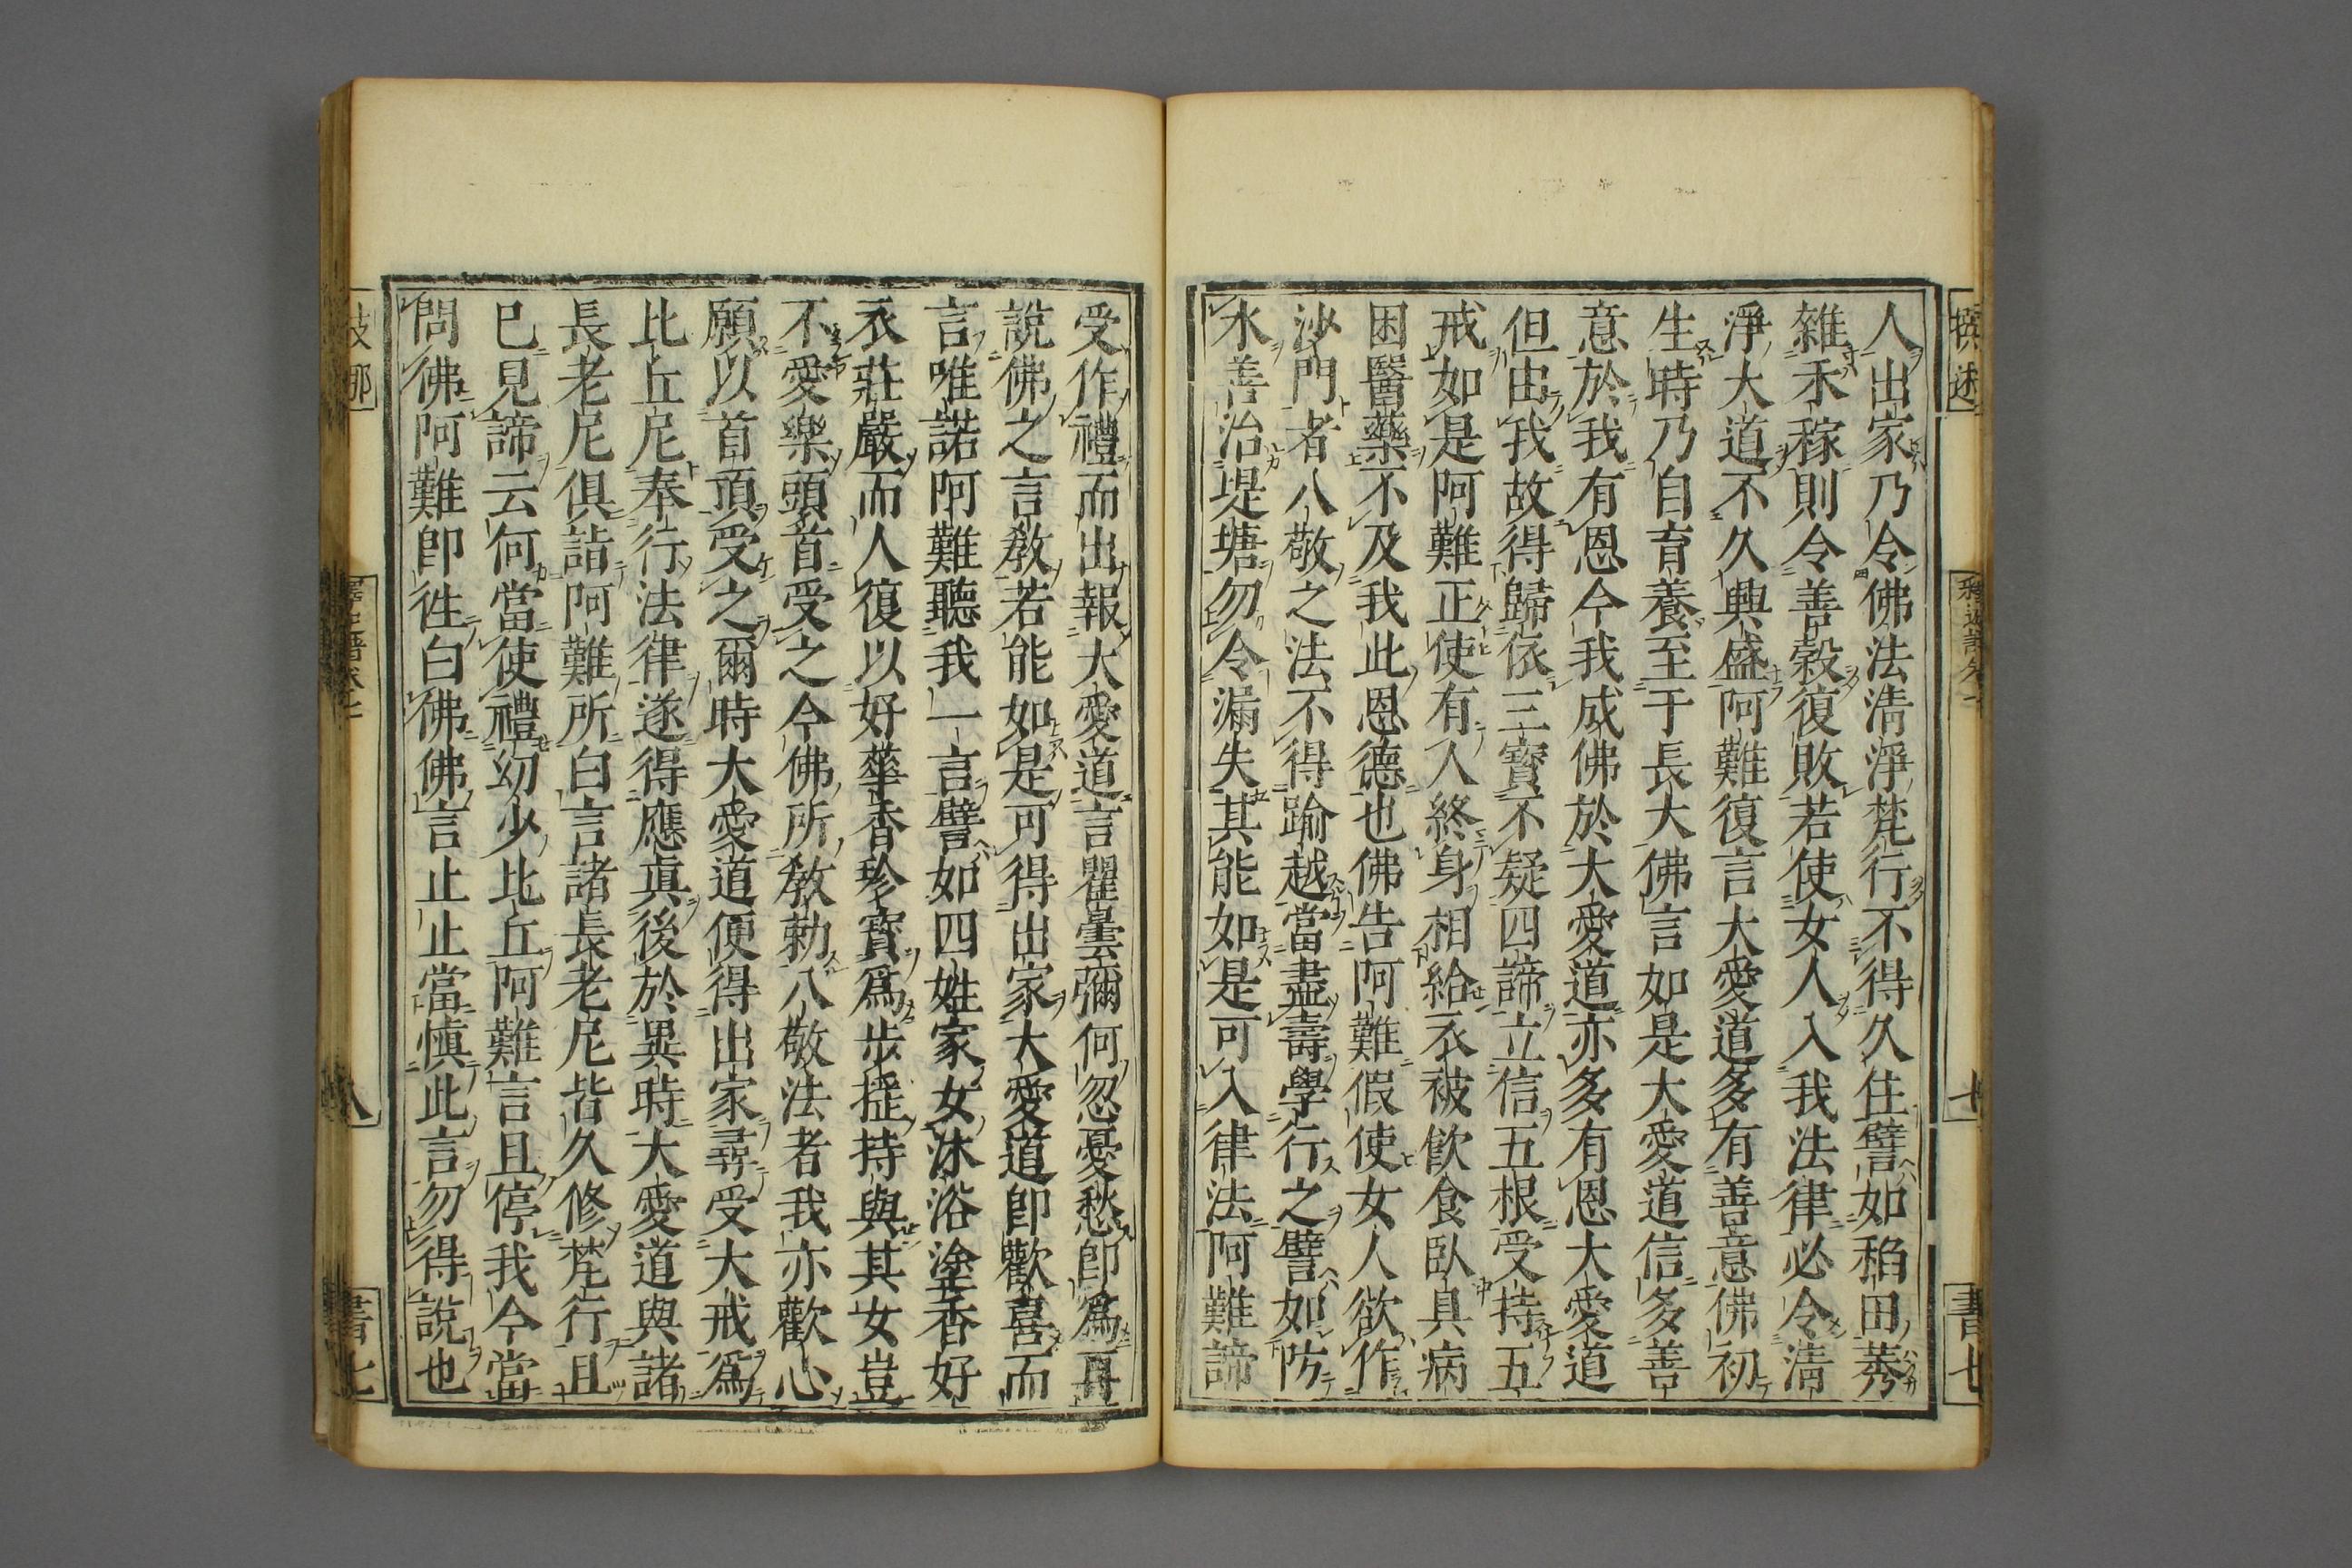 人出家乃令佛法清淨梵行不得久住譬如稻田莠
雜禾稼則令善穀復敗若使女人入我法律必令清
淨大道不久興盛阿難復言大愛道多有善意佛初
生時乃自育養至于長大佛言如是大愛道信多善
意於我有恩今我成佛於大愛道亦多有恩大愛道
但由我故得歸依三寶不疑四諦立信五根受持五
戒如是阿難正使有人終身相給衣被飲食臥具病
困醫藥不及我此恩德也佛告阿難假使女人欲作
沙門者八敬之法不得踰越當盡壽學行之譬如防
水善治堤塘勿令漏失其能如是可入律法阿難諦
受作禮而出報大愛道言瞿曇彌何忽憂愁即爲具
說佛之言敎若能如是可得出家大愛道即歡喜而
言唯諾阿難聽我一言譬如四姓家女沐浴塗香好
衣莊嚴而人復以好華香珍寶爲步搖持與其女豈
不愛樂頭首受之今佛所敎勅八敬法者我亦歡心
願以首頂受之爾時大愛道便得出家尋受大戒爲
比丘尼奉行法律遂得應眞後於異時大愛道與諸
長老尼俱詣阿難所白言諸長老尼皆久修梵行且
已見諦云何當使禮幼少比丘阿難言且停我今當
問佛阿難即徃白佛佛言止止當慎此言勿得說也